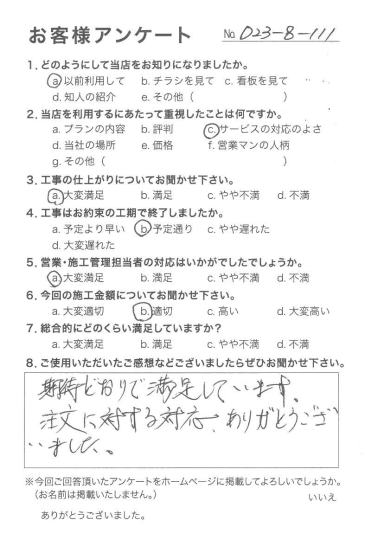 お客様アンケート No. 023-8-111
1. どのようにして当店をお知りになりましたか。
a. 以前利用して b. チラシを見て c. 看板を見て
d. 知人の紹介 e. その他( )
2. 当店を利用するにあたって重視したことは何ですか。
a. プランの内容 b. 評判 c. サービスの対応のよさ
d. 当社の場所 e. 価格 f. 営業マンの人柄
g. その他( )
3. 工事の仕上がりについてお聞かせ下さい。
a. 大変満足 b. 満足 c. やや不満 d. 不満
4. 工事はお約束の工期で終了しましたか。
a. 予定より早い b. 予定通り c. やや遅れた
d. 大変遅れた
5. 営業・施工管理担当者の対応はいかがでしたでしょうか。
a. 大変満足 b. 満足 c. やや不満 d. 不満
6. 今回の施工金額についてお聞かせ下さい。
a. 大変適切 b. 適切 c. 高い d. 大変高い
7. 総合的にどのくらい満足していますか?
a. 大変満足 b. 満足 c. やや不満 d. 不満
8. ご使用いただいたご感想などございましたらぜひお聞かせ下さい。
期待どおりで満足しています。
注文に対する対応、ありがとうござ
いました。
※今回ご回答頂いたアンケートをホームページに掲載してよろしいでしょうか。
(お名前は掲載いたしません。) いいえ
ありがとうございました。